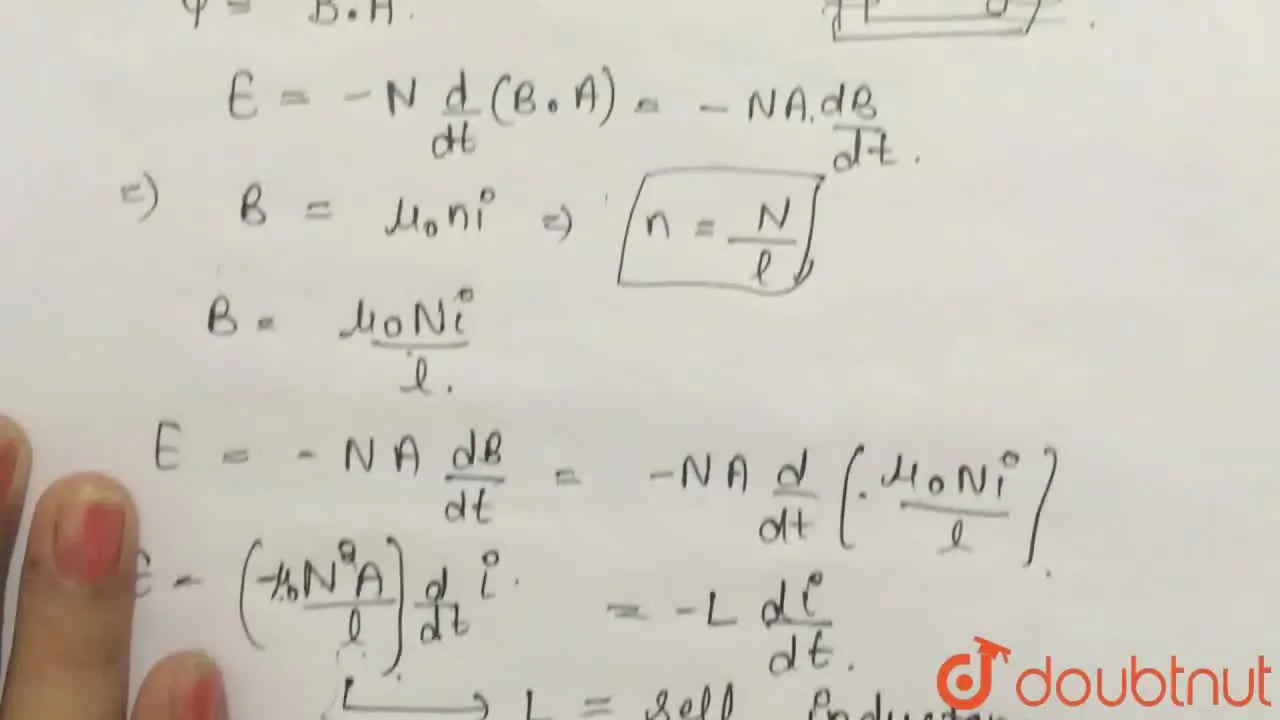 φ = B.A.
E = -N d/dt (B.A) = -NA. dB/dt.
=) B = μ₀ni =) n = N/l
B = μ₀Ni/l.
E = -NA dB/dt = -NA d/dt (μ₀Ni/l).
E = (-μ₀N²A/l) d/dt i. = -L di/dt.
L = self
doubtnut